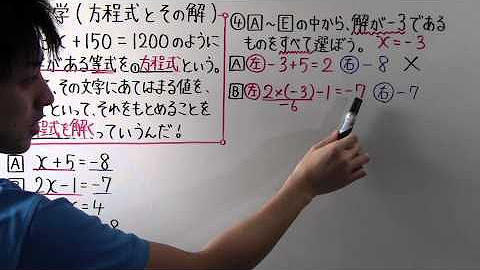 学(方程式とその解)
x+150=1200のように
がある等式を①方程式という。
、その文字にあてはまる値を、
といって、それをもとめることを
程式を解くっていうんだ!
A x+5=-8
B 2x-1=-7
=4
④A~Eの中から、解が-3である
ものをすべて選ぼう。 x=-3
A 左 -3+5=2 右 -8 ×
B 左 2×(-3)-1=-7 右 -7
-6